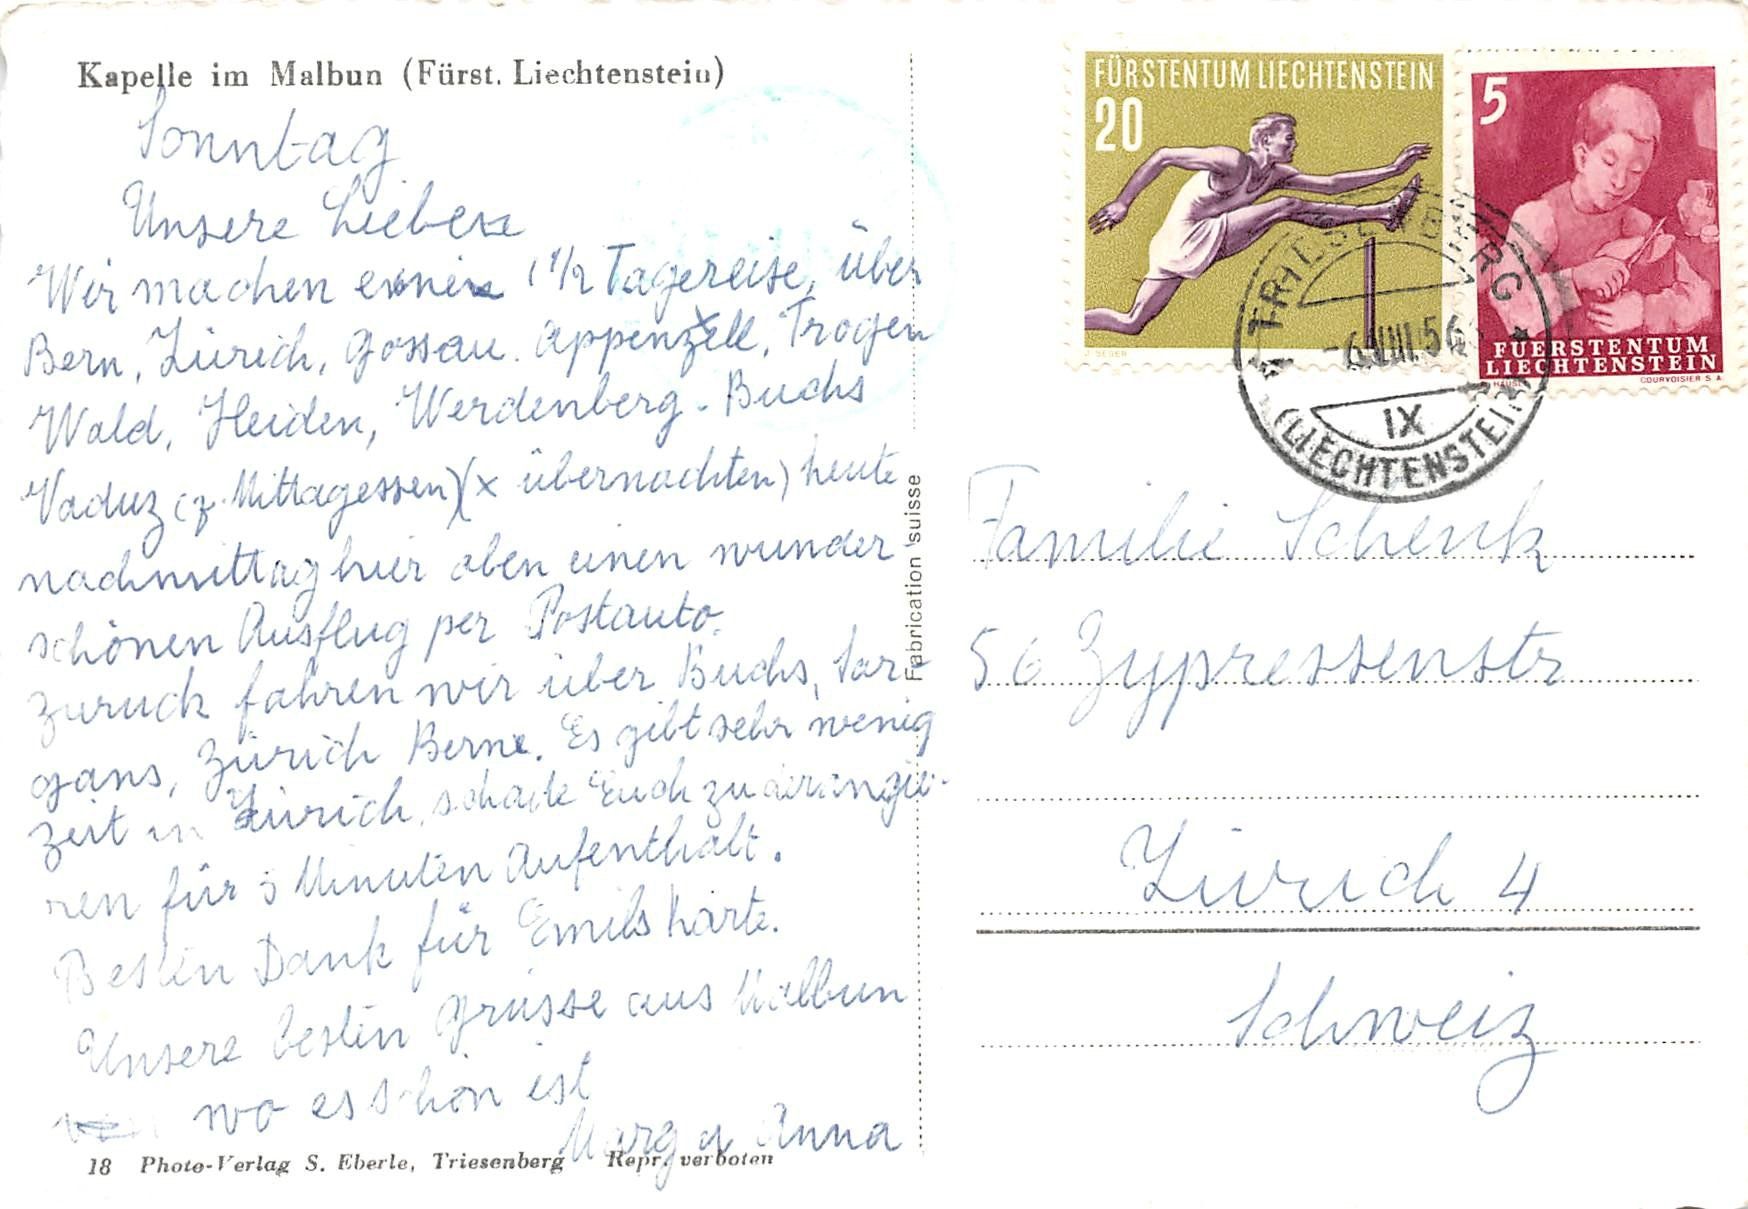 Kapelle im Malbun (Fürst. Liechtenstein)
Sonntag
Unsere Lieben
Wir machen eine 1 1/2 Tagereise, über
Bern, Zürich, Gossau. Appenzell, Trogen
Wald, Heiden, Werdenberg - Buchs
Vaduz (z. Mittagessen) (x übernachten) heute
nachmittag hier oben einen wunder-
schönen Ausflug per Postauto.
Zurück fahren wir über Buchs, Sar-
gans, Zürich Berne. Es gibt sehr wenig
Zeit in Zürich, schade Euch zu derangie-
ren für 5 Minuten Aufenthalt.
Besten Dank für Emils Karte.
Unsere besten Grüsse aus Malbun
wo es schön ist
Marg Anna
18 Photo-Verlag S. Eberle, Triesenberg Repr. verboten
Fabrication suisse
FÜRSTENTUM LIECHTENSTEIN
20
J. SEGER
5
FUERSTENTUM
LIECHTENSTEIN
HÄUSLE
COURVOISIER S A
TRIESENBERG
-6.VIII.56
IX
(LIECHTENSTEIN)
Familie Schenk
56 Zypressenstr
Zürich 4
Schweiz